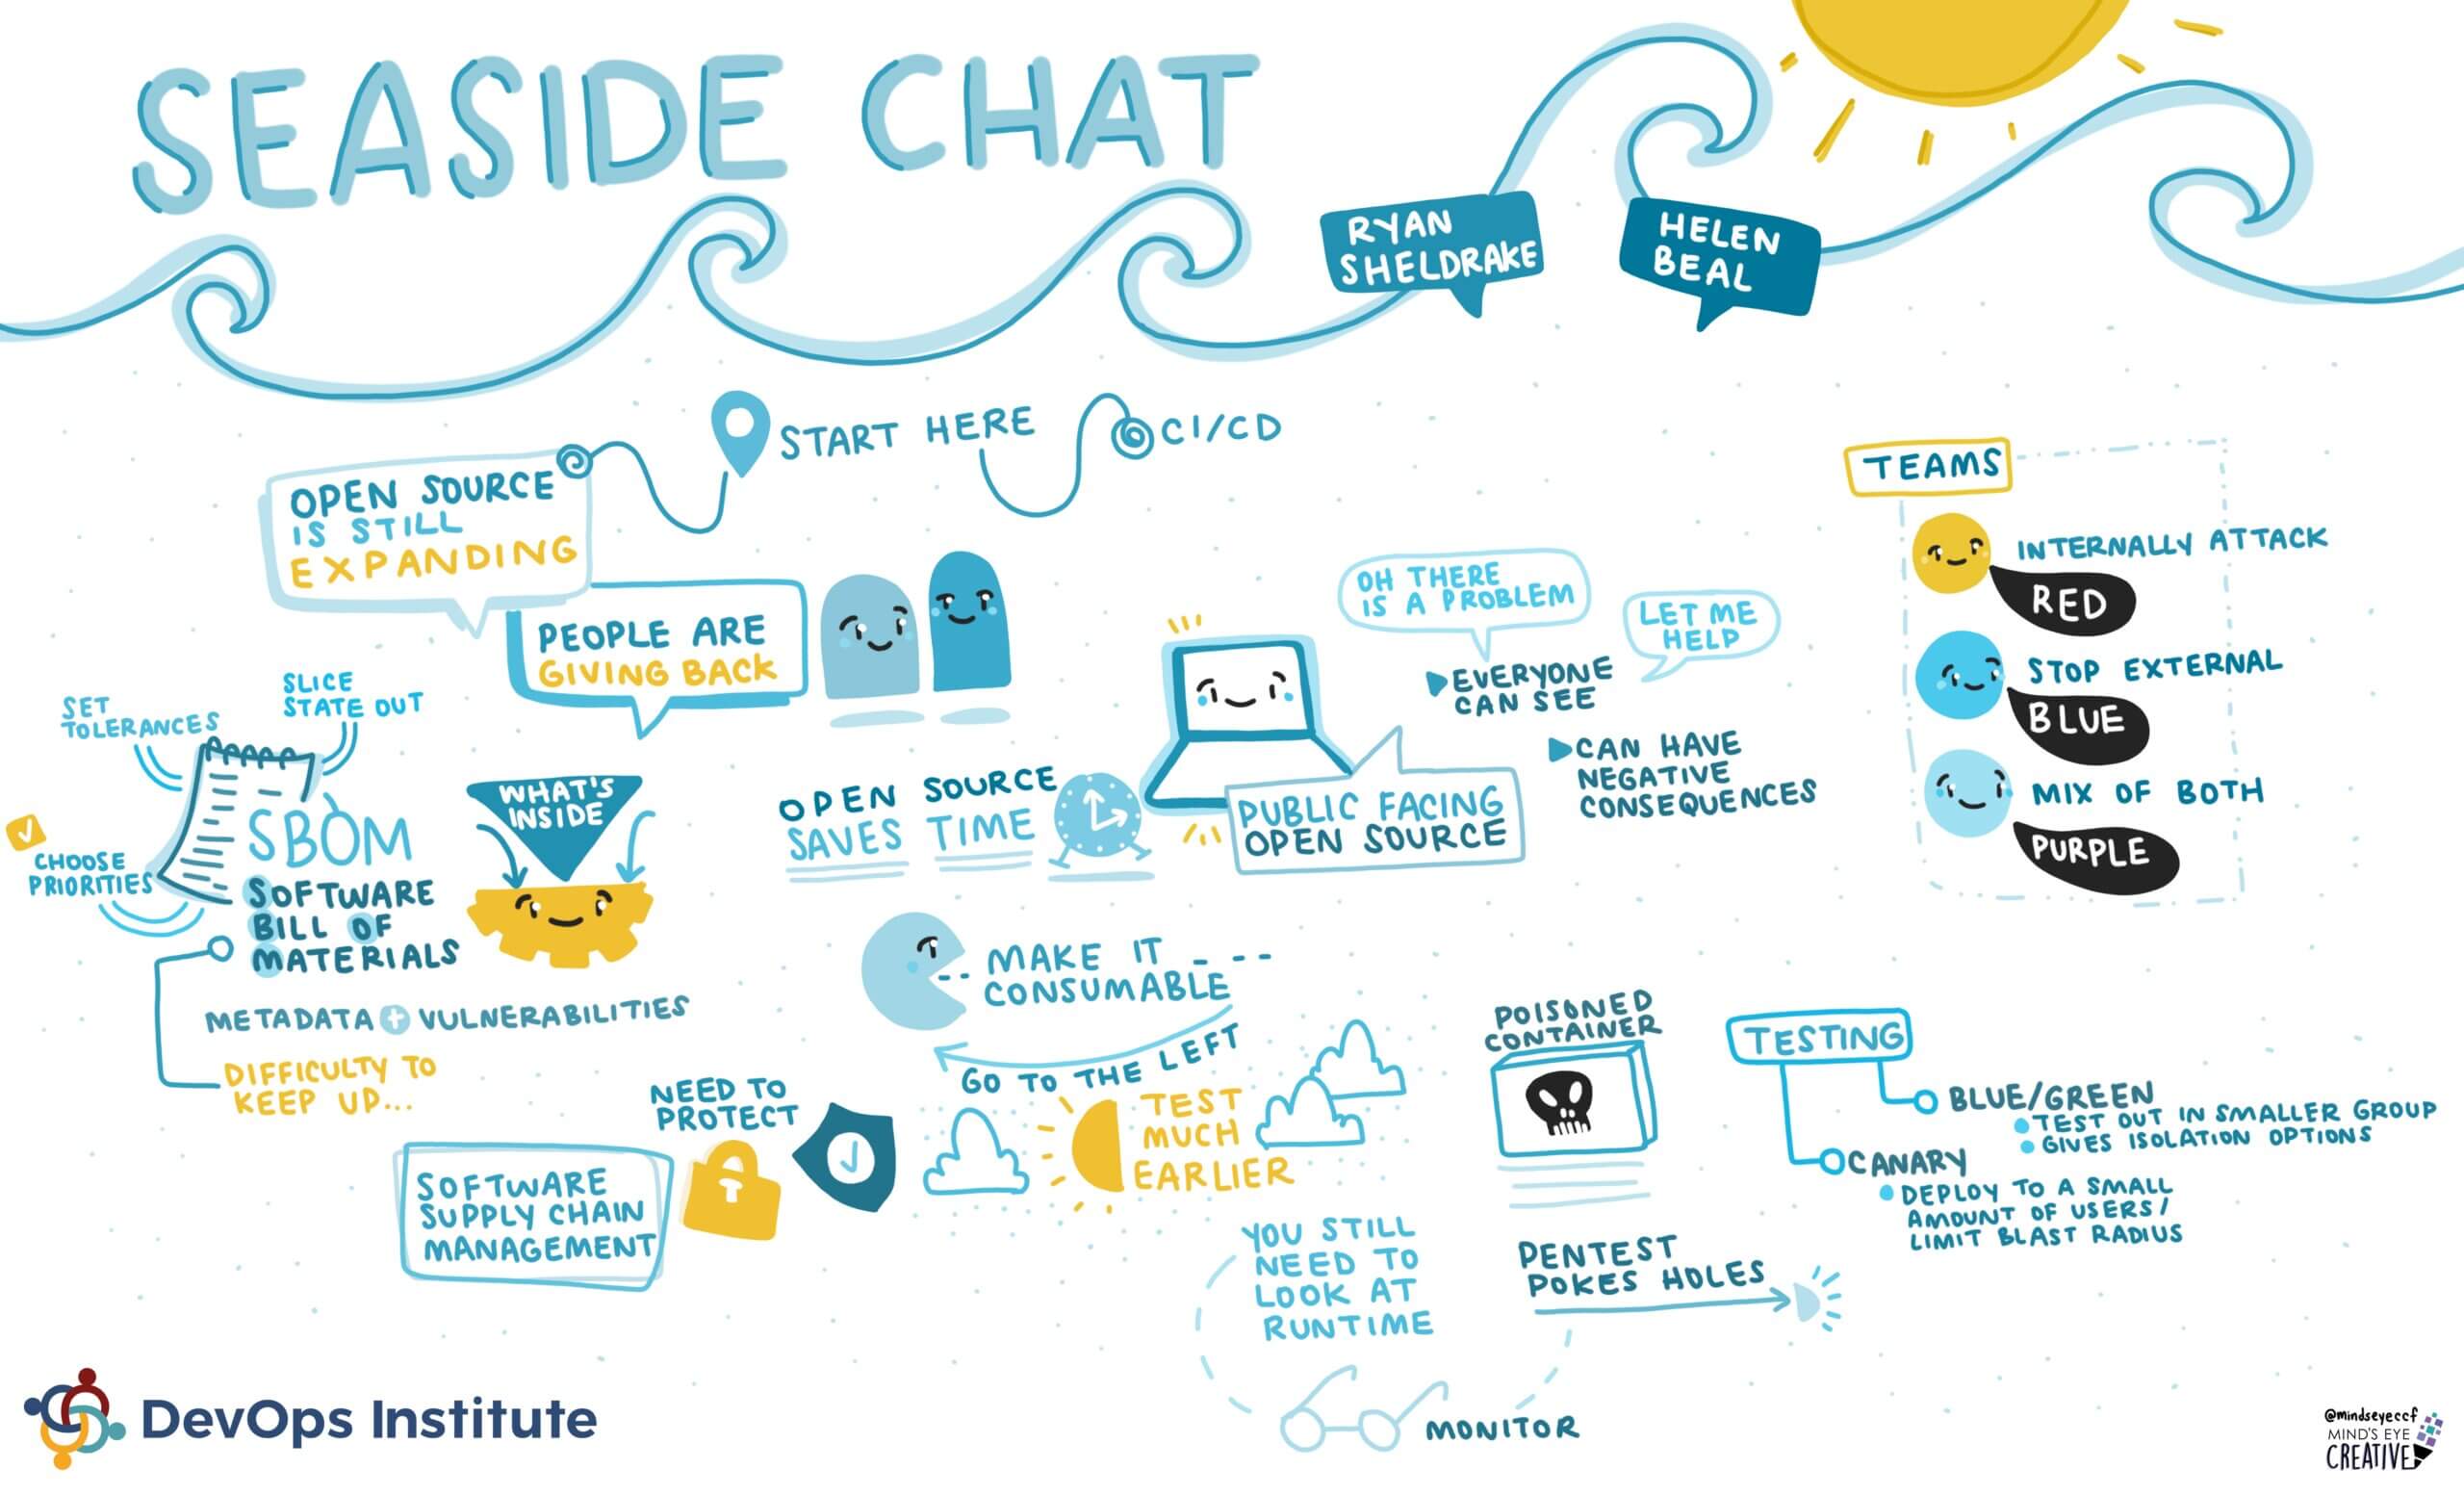 SEASIDE CHAT
RYAN
SHELDRAKE
HELEN
BEAL
START HERE
CI/CD
OPEN SOURCE
IS STILL
EXPANDING
PEOPLE ARE
GIVING BACK
SET
TOLERANCES
SLICE
STATE OUT
CHOOSE
PRIORITIES
SBOM
SOFTWARE
BILL OF
MATERIALS
WHAT'S
INSIDE
METADATA + VULNERABILITIES
DIFFICULTY TO
KEEP UP...
OPEN SOURCE
SAVES TIME
OH THERE
IS A PROBLEM
LET ME
HELP
EVERYONE
CAN SEE
CAN HAVE
NEGATIVE
CONSEQUENCES
PUBLIC FACING
OPEN SOURCE
TEAMS
INTERNALLY ATTACK
RED
STOP EXTERNAL
BLUE
MIX OF BOTH
PURPLE
MAKE IT
CONSUMABLE
GO TO THE LEFT
TEST
MUCH
EARLIER
NEED TO
PROTECT
SOFTWARE
SUPPLY CHAIN
MANAGEMENT
POISONED
CONTAINER
TESTING
BLUE/GREEN
TEST OUT IN SMALLER GROUP
GIVES ISOLATION OPTIONS
CANARY
DEPLOY TO A SMALL
AMOUNT OF USERS/
LIMIT BLAST RADIUS
YOU STILL
NEED TO
LOOK AT
RUNTIME
PENTEST
POKES HOLES
MONITOR
DevOps Institute
@mindseyeccf
MIND'S EYE
CREATIVE